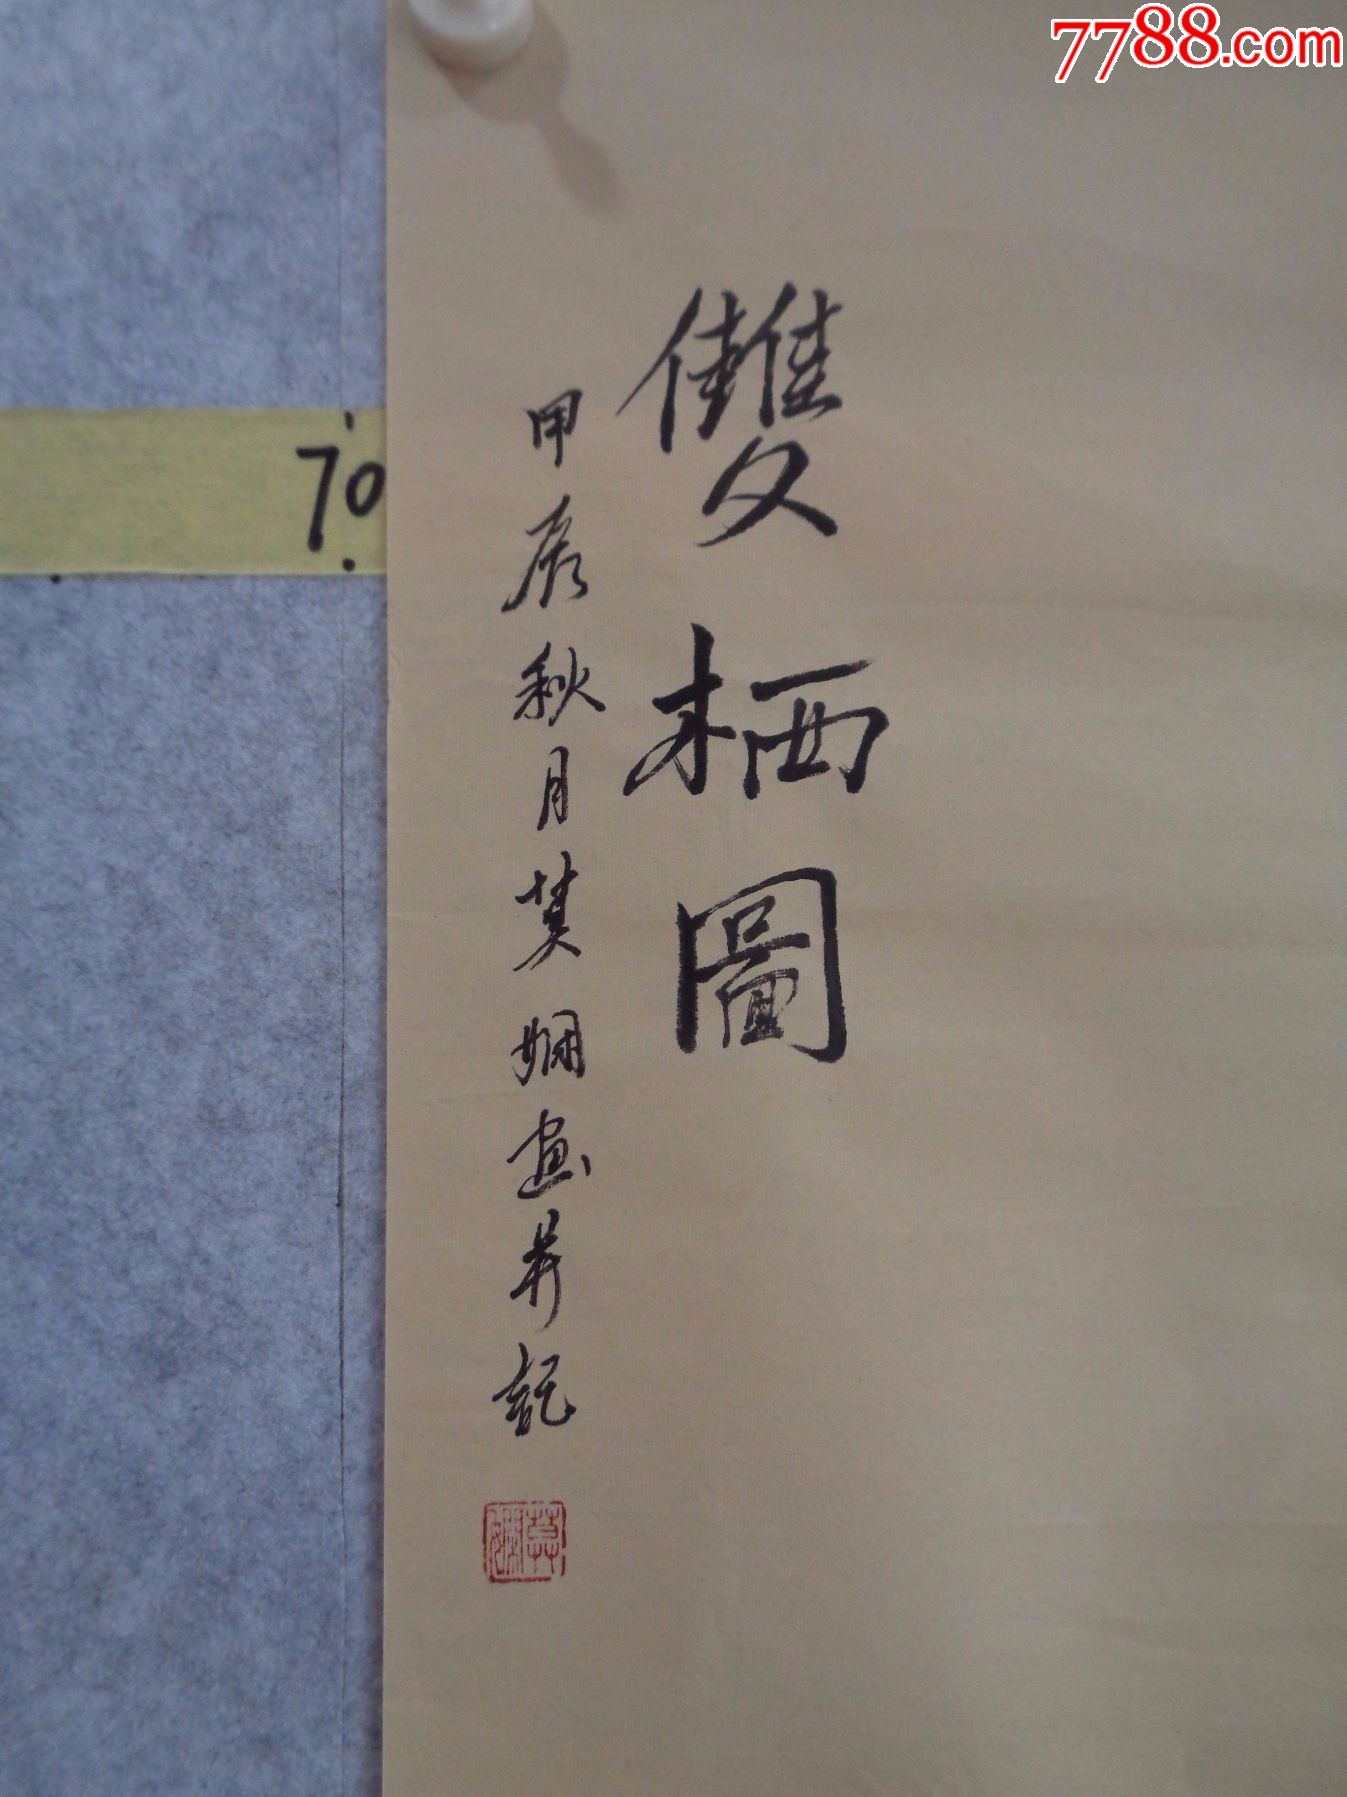 7788.com
70
雙栖圖
甲辰秋月莫嫻画并記